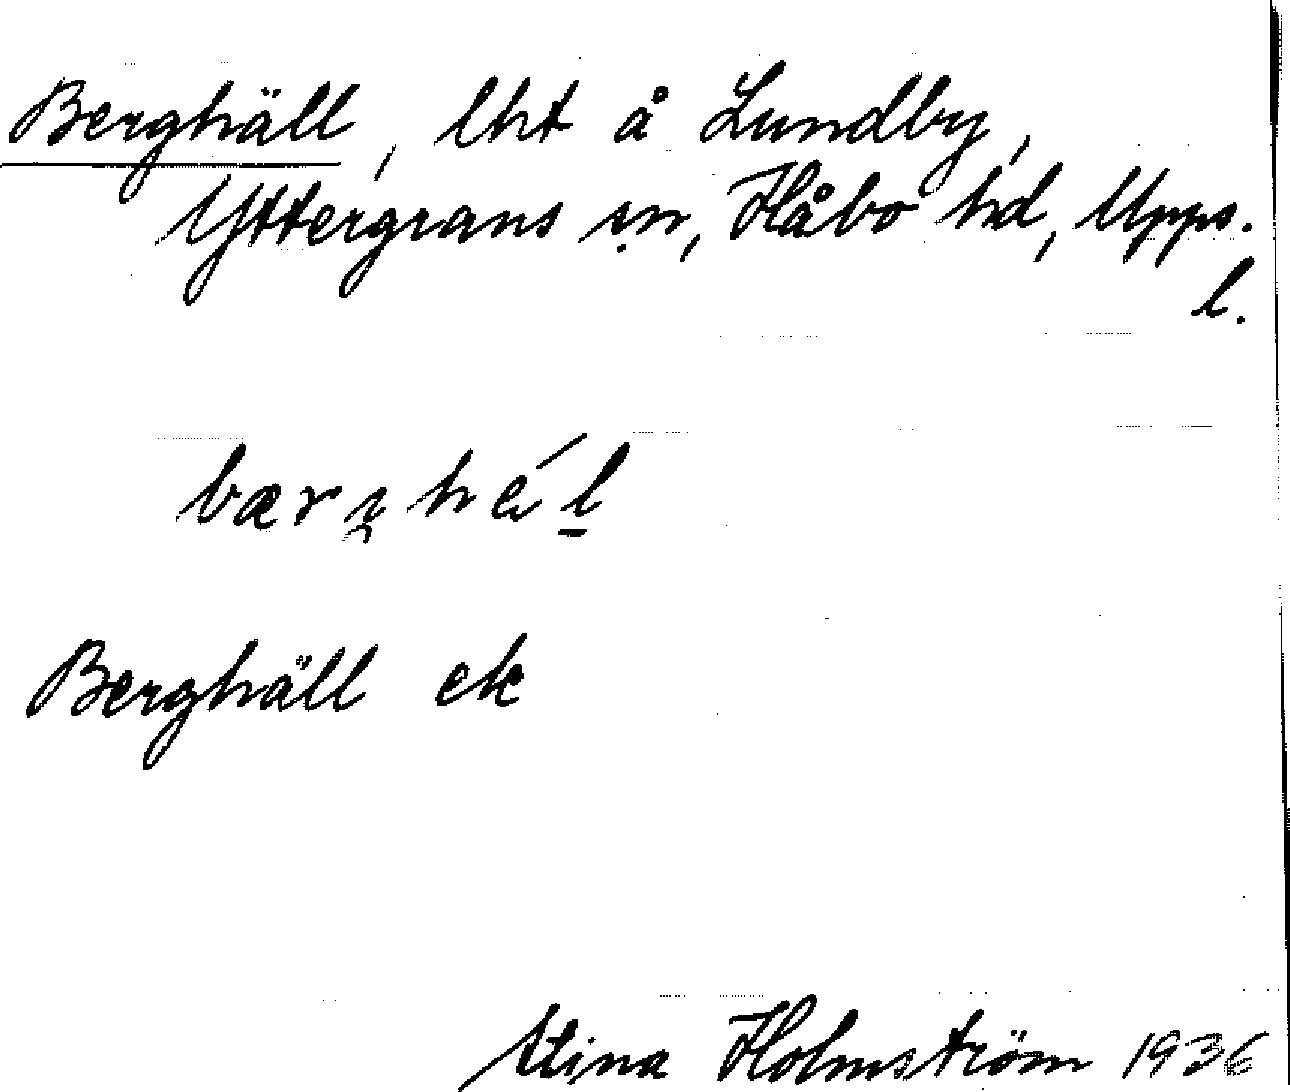 Berghäll, lht å Lundby,
Yttergrans sn, Håbo hd, Upps.
l.
Berghäll ek
Stina Holmström 1936